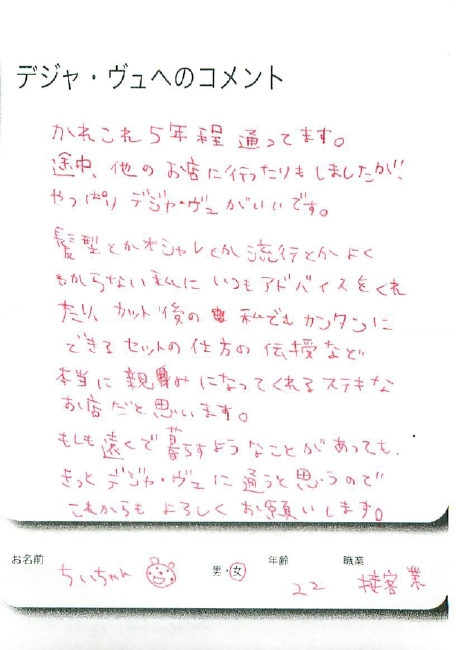 デジャ・ヴュへのコメント
かれこれ5年程 通ってます。
途中、他のお店に行ったりもしましたが、
やっぱり デジャ・ヴュ がいいです。
髪型とかオシャレとか 流行とか よく
わからない私に いつもアドバイスをくれ
たり、カット後の 私でもカンタンに
できる セットの 仕方の 伝授など
本当に 親身になってくれる ステキな
お店だと思います。
もしも 遠くで暮らすようなことがあっても、
きっと デジャ・ヴュに 通うと思うので
これからも よろしく お願いします。
お名前 ちいちゃん 男・女 年齢 22 職業 接客業